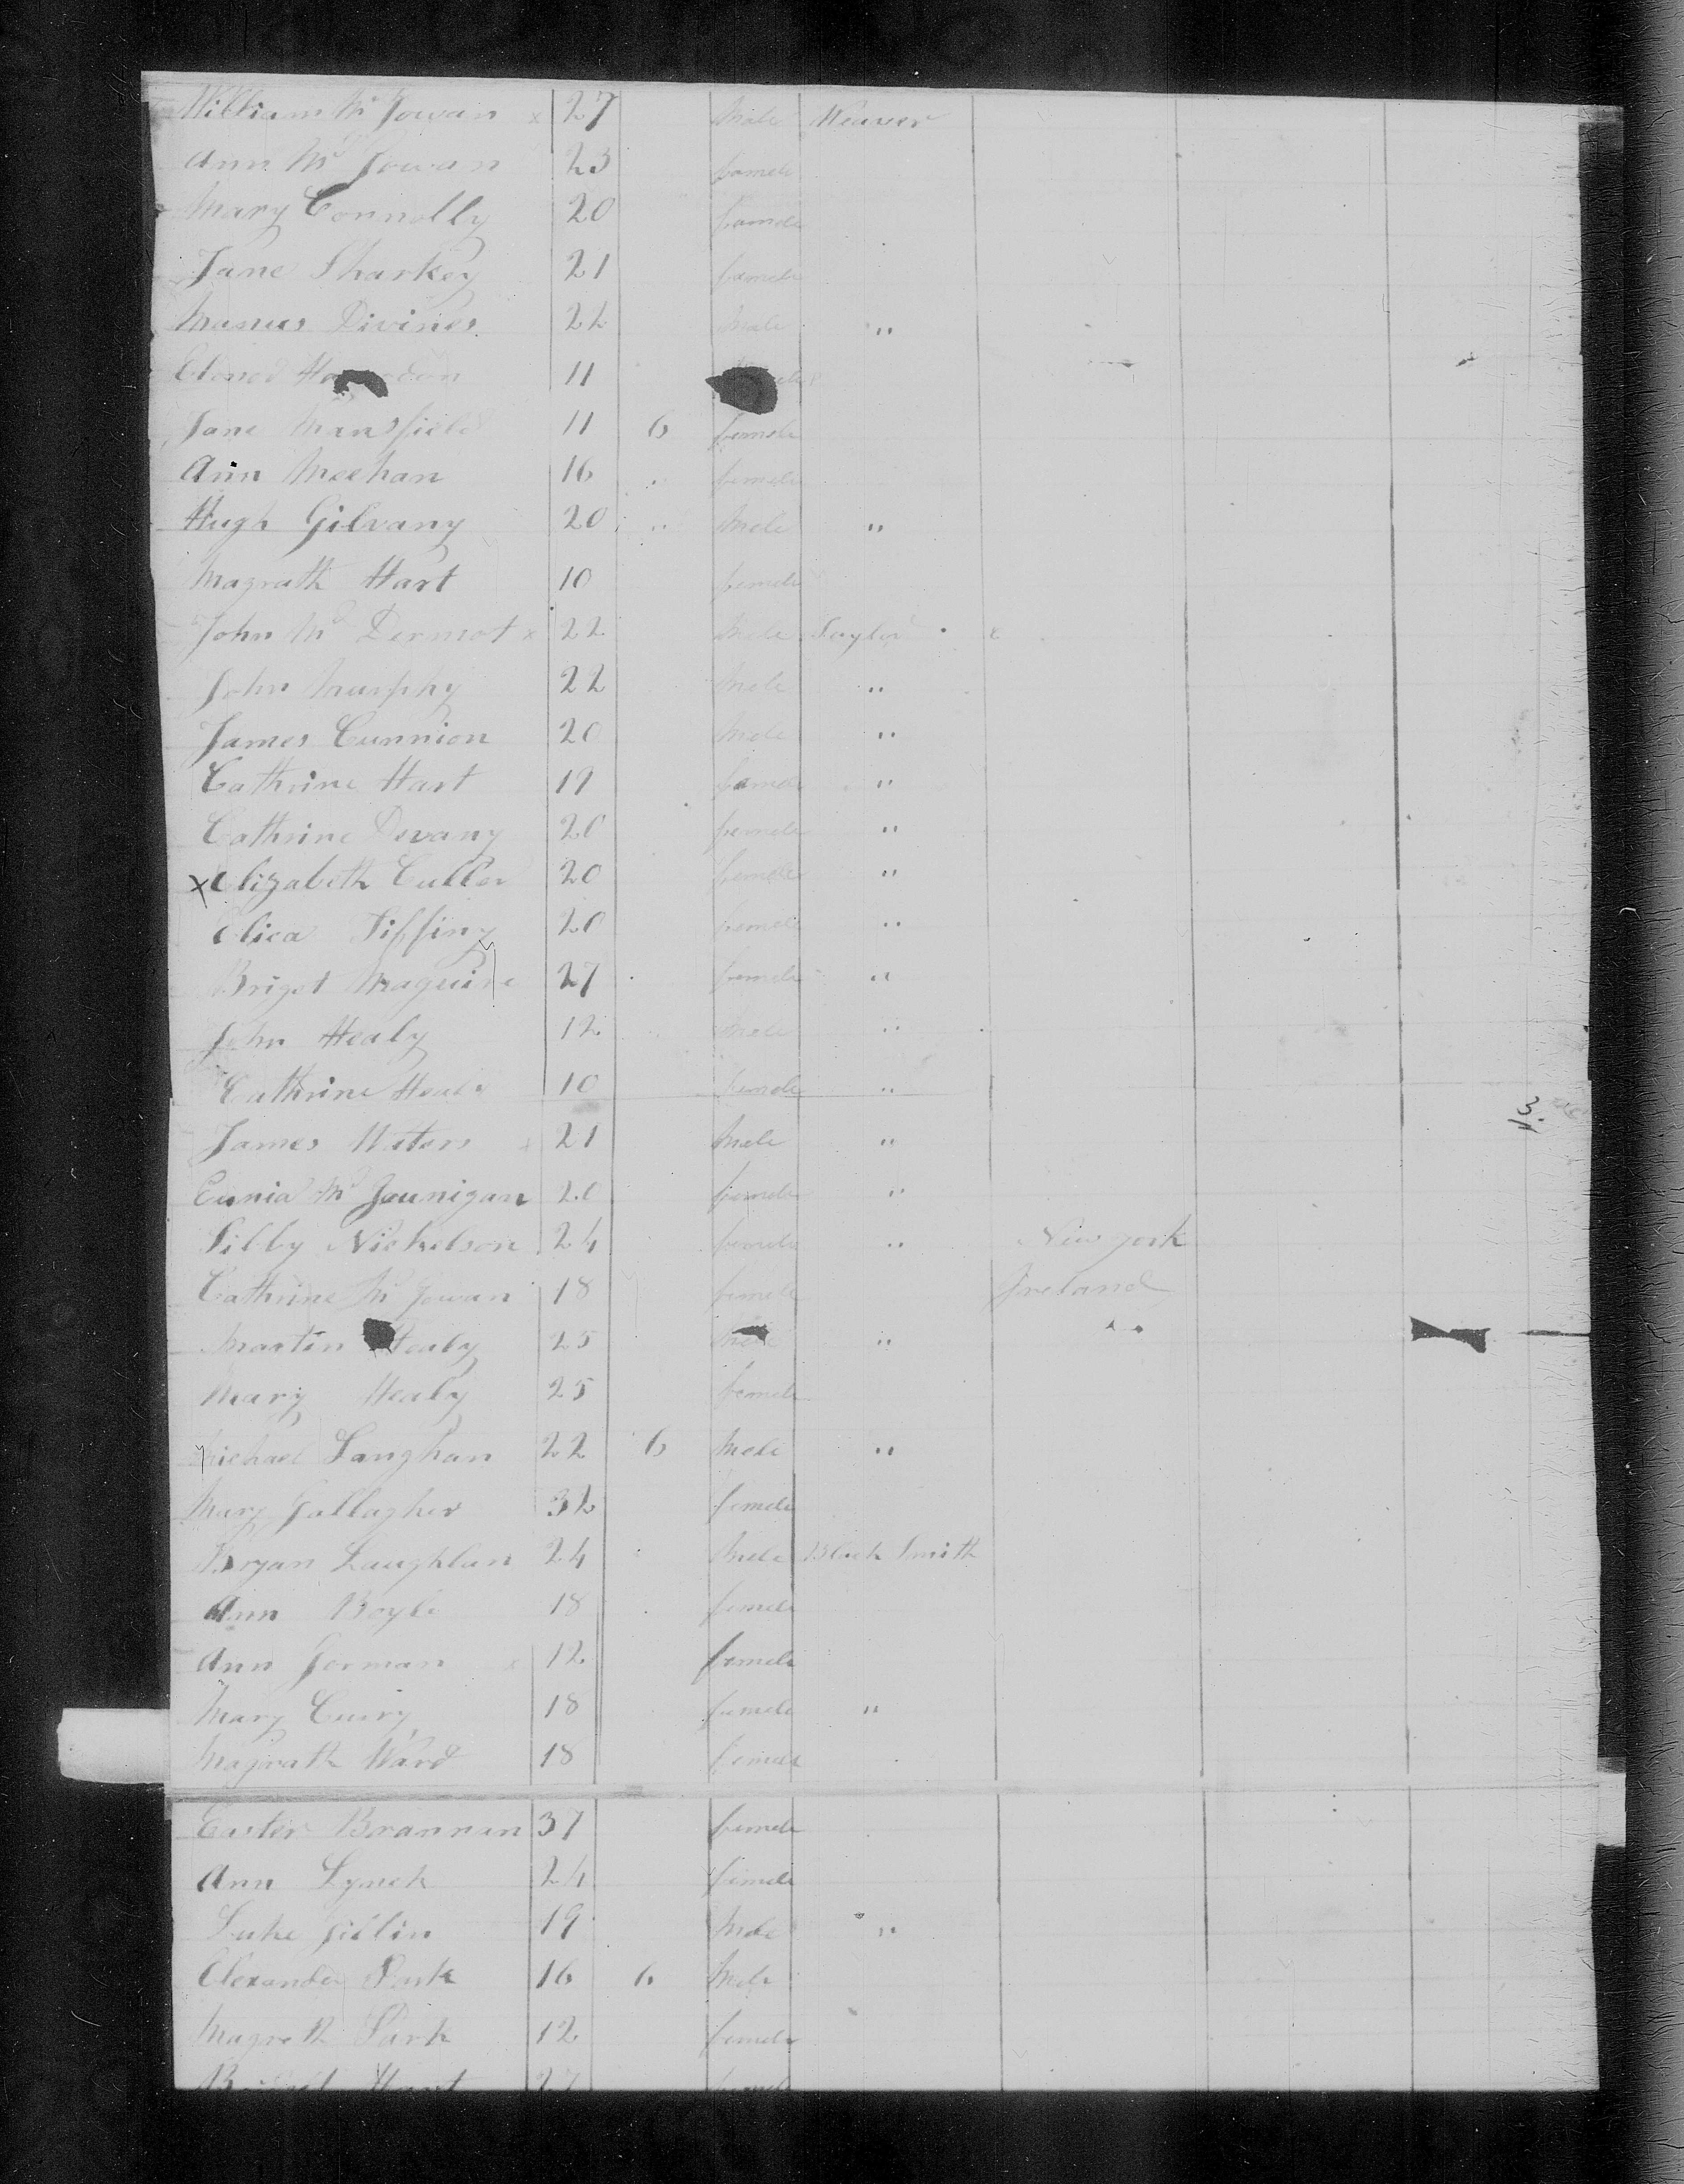 William Mc Gowan x 27 Male Weaver
Ann Mc Gowan 23 female
Mary Connolly 20 female
Jane Sharkey 21 female
Manus Divines 22 Male "
11
Jane Mansfield 11 6 female
Ann Meehan 16 female
Hugh Gilvany 20 " Male "
Magrath Hart 10 female
John Mc Dermot x 22 Male Taylor x
John Murphy 22 Male "
James Cunnion 20 Male "
Cathrine Hart 19 female "
Cathrine Devany 20 female "
x Elizabeth Culler 20 female "
Elica Tiffiny 20 female "
Briget Maguire 27 female "
John Healy 12 Male "
Cathrine Healy 10 female "
James Waters x 21 Male "
Eunia Mc Gounigan 20 female "
Sibby Nickelson 24 female " New york
Cathrine Mc Gowan 18 female Ireland
Martin Healy 25 Male " "
Mary Healy 25 female
Michael Langhan 22 6 Male "
Mary Gallagher 32 female
Bryan Laughlan 24 Male Black Smith
Ann Boyle 18 female
Ann Gorman x 12 female
Mary Curry 18 female "
Magrath Ward 18 female
Easter Brannan 37 female
Ann Lynch 24 female
Luke Gillin 19 Male "
Elexander Park 16 6 Male
Magreth Park 12 female
Hart 27 female
13